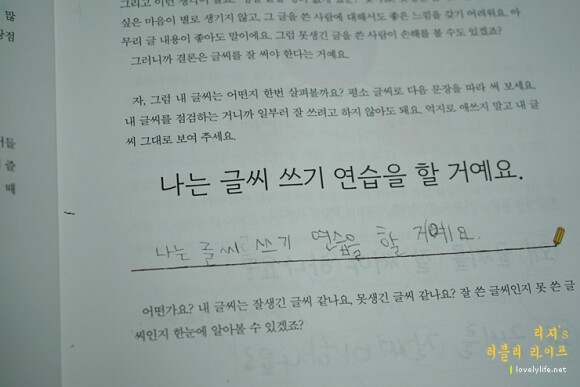 많
싶은 마음이 별로 생기지 않고, 그 글을 쓴 사람에 대해서도 좋은 느낌을 갖기 어려워요. 아
무리 글 내용이 좋아도 말이에요. 그럼 못생긴 글을 쓴 사람이 손해를 볼 수도 있겠죠?
그러니까 결론은 글씨를 잘 써야 한다는 거예요.
자, 그럼 내 글씨는 어떤지 한번 살펴볼까요? 평소 글씨로 다음 문장을 따라 써 보세요.
내 글씨를 점검하는 거니까 일부러 잘 쓰려고 하지 않아도 돼요. 억지로 애쓰지 말고 내 글
씨 그대로 보여 주세요.
줄
때
나는 글씨 쓰기 연습을 할 거예요.
나는 글씨 쓰기 연습을 할 거예요.
어떤가요? 내 글씨는 잘생긴 글씨 같나요, 못생긴 글씨 같나요? 잘 쓴 글씨인지 못 쓴 글
씨인지 한눈에 알아볼 수 있겠죠?
리지's
러블리 라이프
lovelylife.net